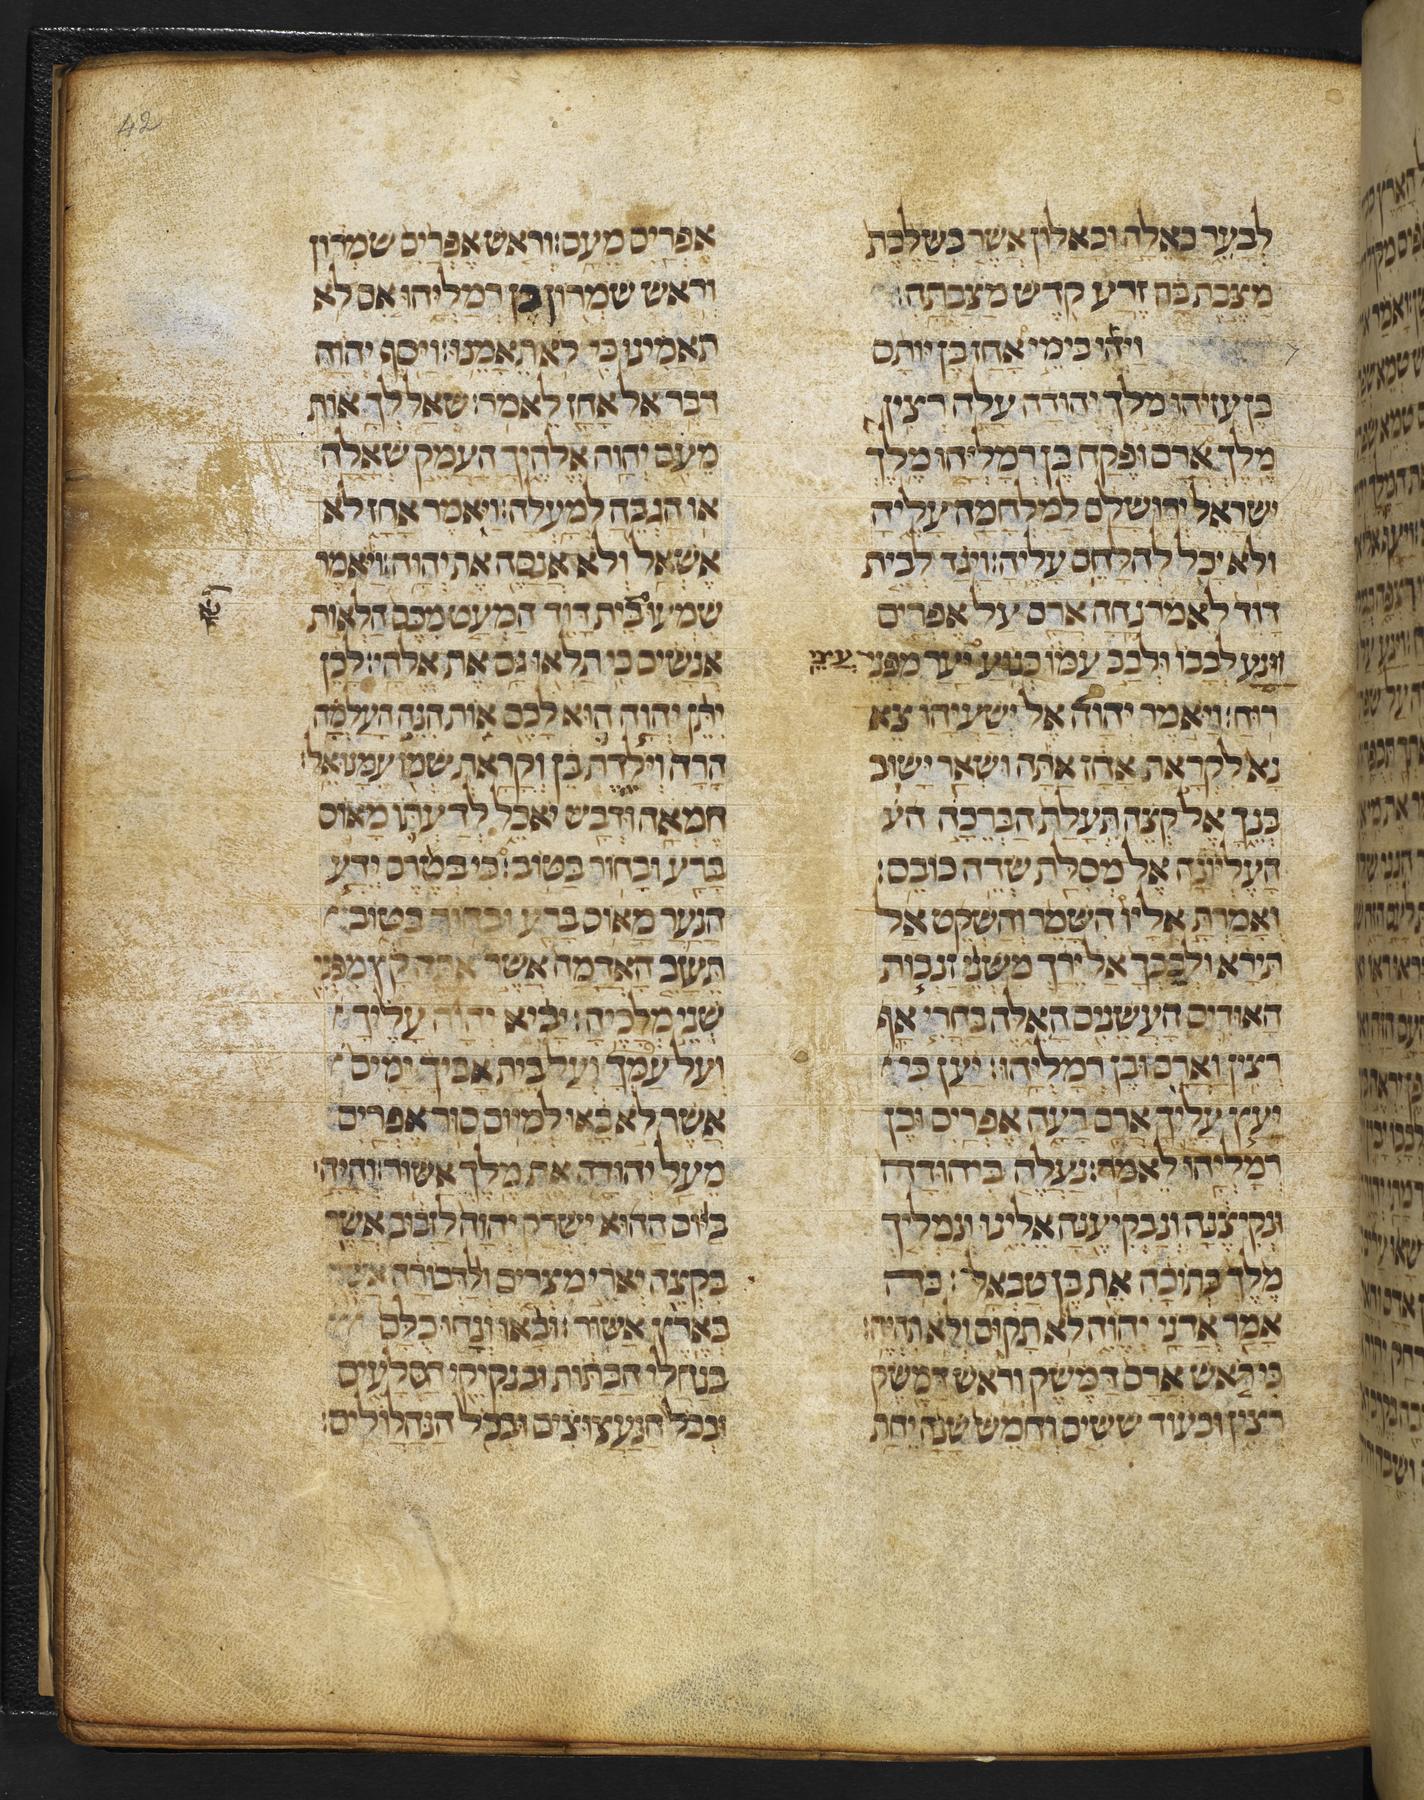 42
לבער כאלה וכאלון אשר בשלכת
מצבת בם זרע קדש מצבתה׃
ויהי בימי אחז בן יותם
בן עזיהו מלך יהודה עלה רצין
מלך ארם ופקח בן רמליהו מלך
ישראל ירושלם למלחמה עליה
ולא יכל להלחם עליה׃ ויגד לבית
דוד לאמר נחה ארם על אפרים
וינע לבבו ולבב עמו כנוע יער מפני
עצי
רוח׃ ויאמר יהוה אל ישעיהו צא
נא לקראת אחז אתה ושאר ישוב
בנך אל קצה תעלת הברכה הע
העליונה אל מסלת שדה כובס׃
ואמרת אליו השמר והשקט אל
תירא ולבבך אל ירך משני זנבות
האודים העשנים האלה בחרי אף
רצין וארם ובן רמליהו׃ יען כי
יעץ עליך ארם רעה אפרים ובן
רמליהו לאמר׃ נעלה ביהודה
ונקיצנה ונבקיענה אלינו ונמליך
מלך בתוכה את בן טבאל׃ כה
אמר אדני יהוה לא תקום ולא תהיה׃
כי ראש ארם דמשק וראש דמשק
רצין ובעוד ששים וחמש שנה יחת
אפרים מעם׃ וראש אפרים שמרון
וראש שמרון בן רמליהו אם לא
תאמינו כי לא תאמנו׃ ויוסף יהוה
דבר אל אחז לאמר׃ שאל לך אות
מעם יהוה אלהיך העמק שאלה
או הגבה למעלה׃ ויאמר אחז לא
אשאל ולא אנסה את יהוה׃ ויאמר
שמעו בית דוד המעט מכם הלאות
אנשים כי תלאו גם את אלהי׃ לכן
יתן יהוה הוא לכם אות הנה העלמה
הרה וילדת בן וקראת שמו עמנואל׃
חמאה ודבש יאכל לדעתו מאוס
ברע ובחור בטוב׃ כי בטרם ידע
הנער מאוס ברע ובחור בטוב
תעזב האדמה אשר אתה קץ מפני
שני מלכיה׃ יביא יהוה עליך
ועל עמך ועל בית אביך ימים
אשר לא באו למיום סור אפרים
מעל יהודה את מלך אשור׃ והיה
ביום ההוא ישרק יהוה לזבוב אשר
בקצה יארי מצרים ולדבורה אשר
בארץ אשור׃ ובאו ונחו כלם
בנחלי הבתות ובנקיקי הסלעים
ובכל הנעצוצים ובכל הנהלולים׃